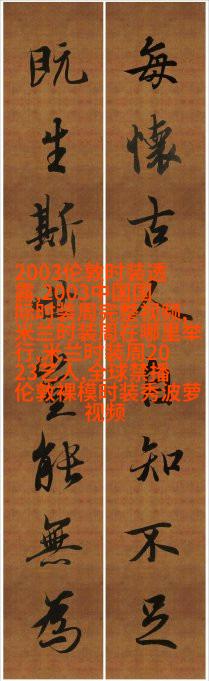 每懷古人知不足
既生斯能無為
2002伦敦时装透
露,2003中国国
际时装周完整视频,
米兰时装周在哪里举
行,米兰时装周20
23人,全球禁播
伦敦裸模时装秀波萝
视频